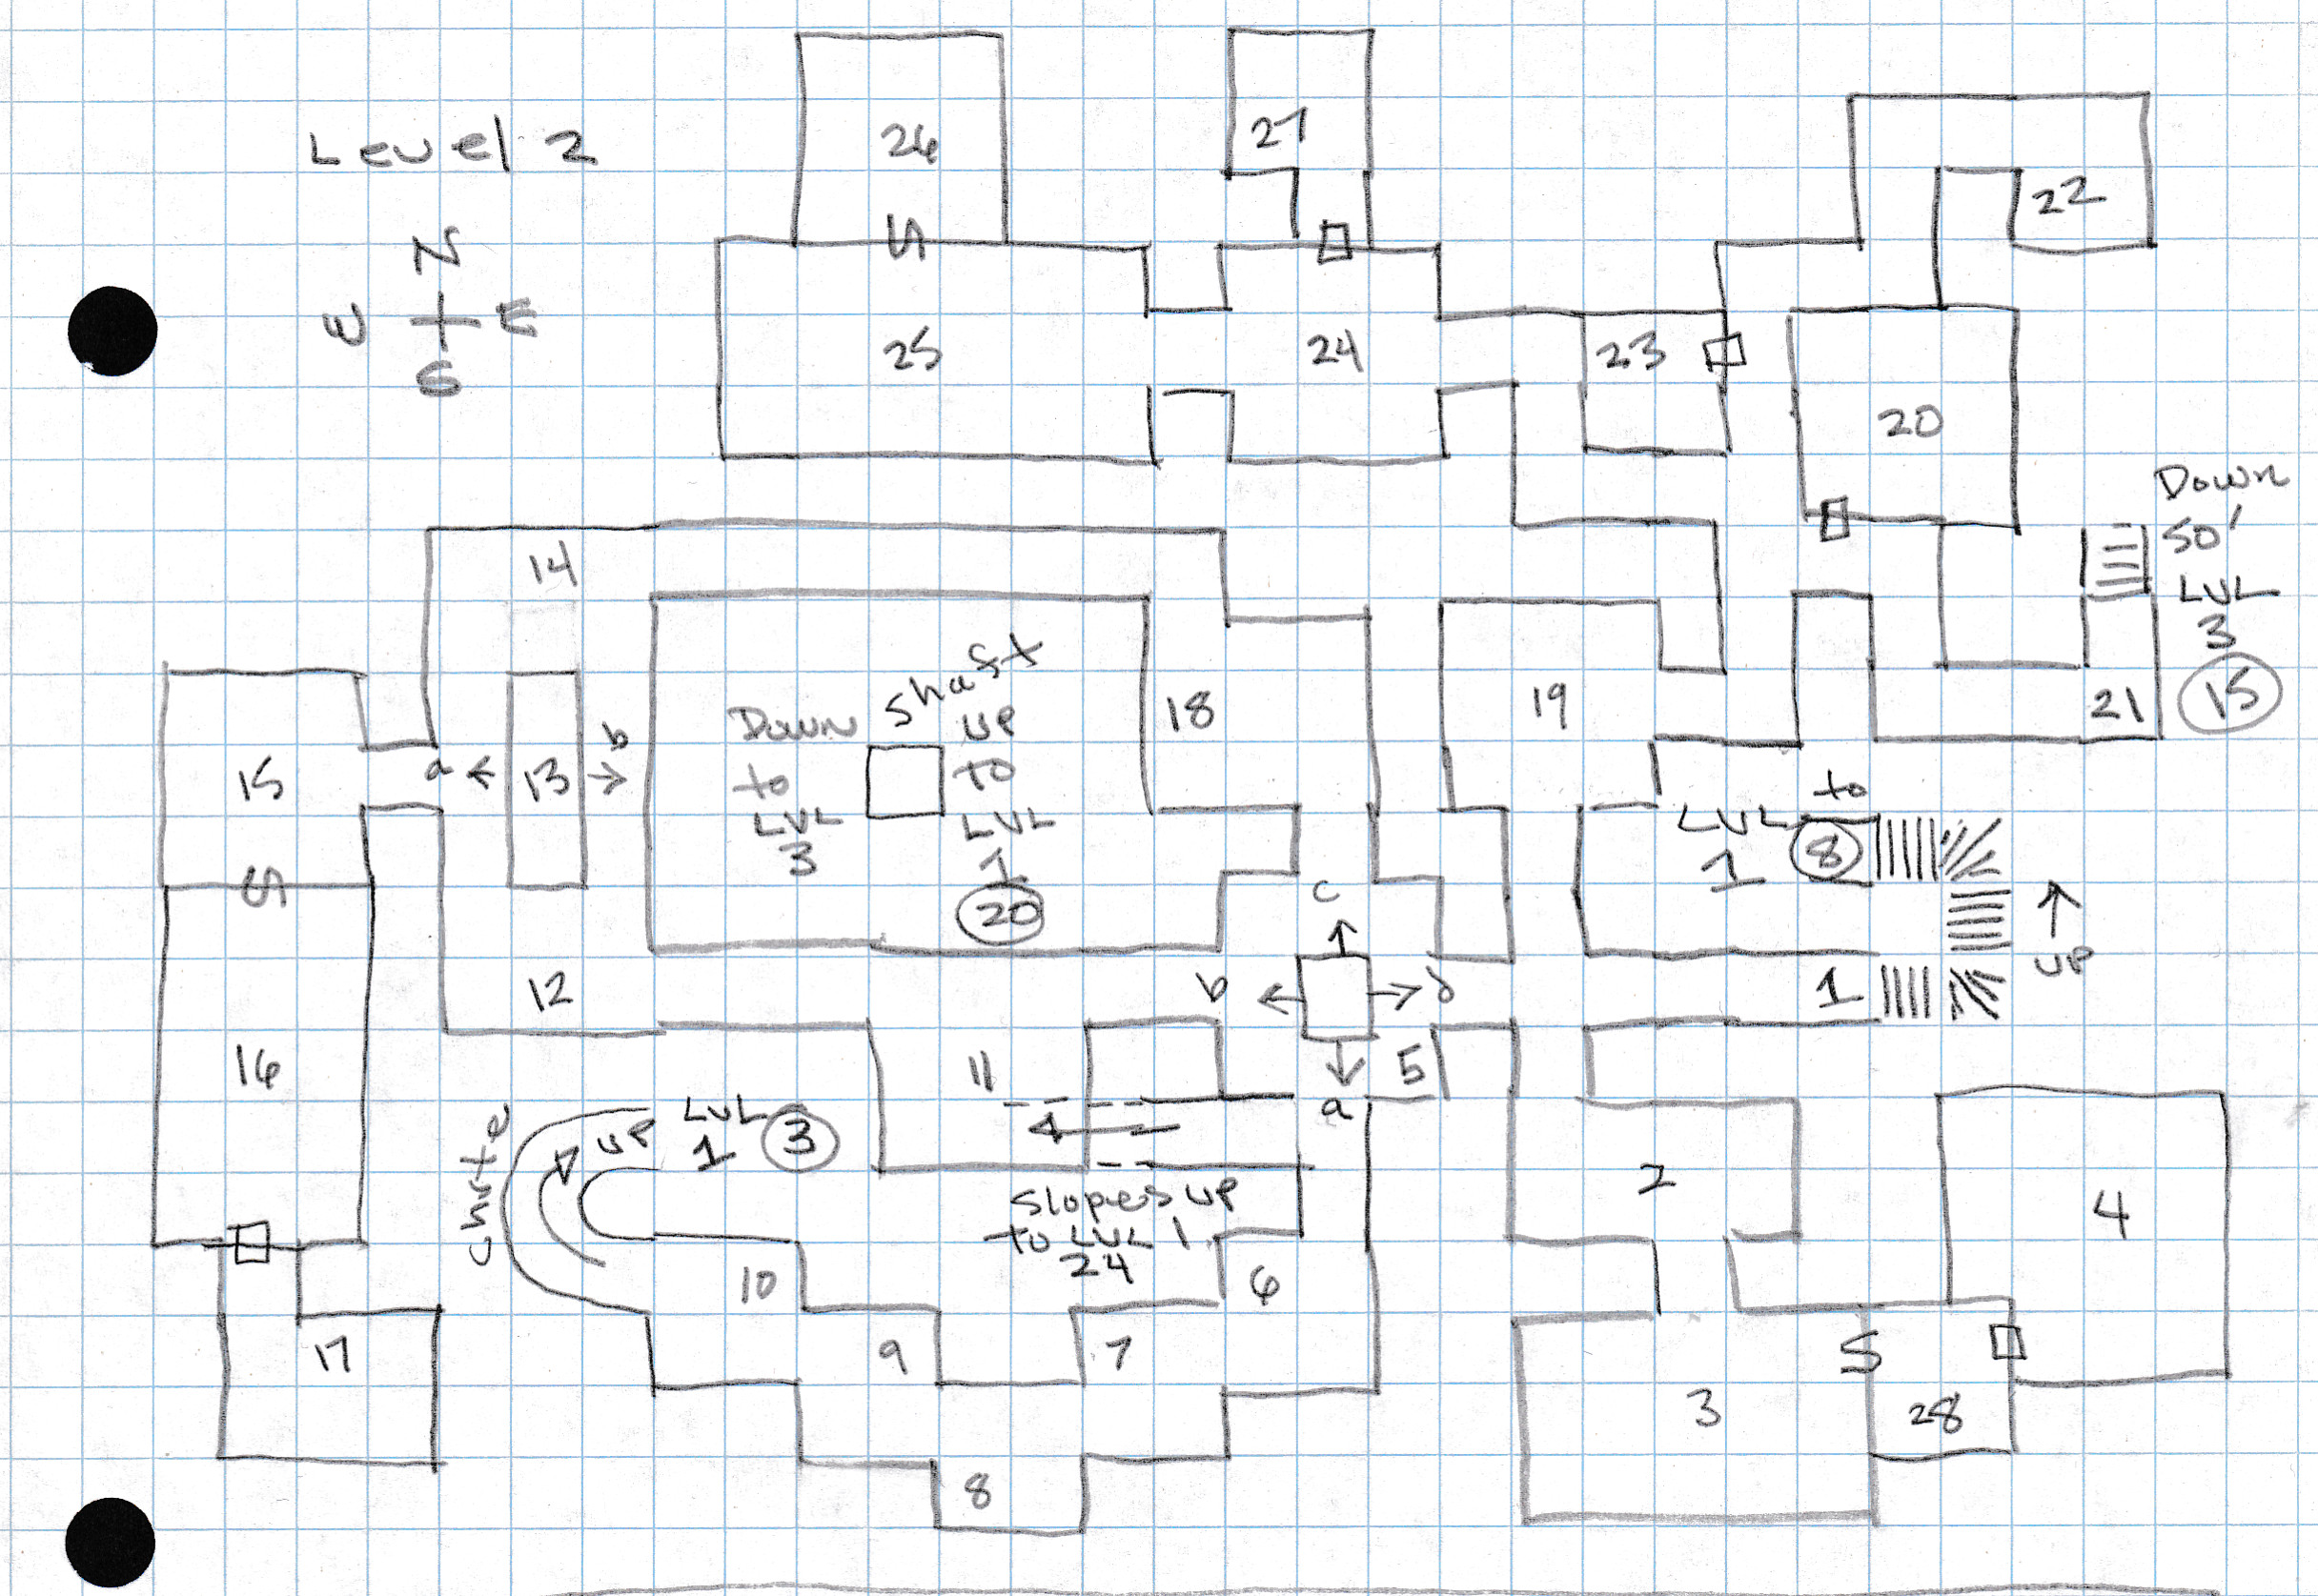 Level 2
N
W E
S
26
27
22
25
S
24
23
20
Down
50'
LVL
3
15
21
14
18
19
15
a
13
b
S
Down
to
LVL
3
Shaft
up
to
LVL
1
20
to
LVL 8
1
up
1
c
b
d
a
5
12
11
16
LVL
1 3
up
chute
Slopes up
to LVL 1
24
10
6
9
7
8
17
2
4
S
3
28